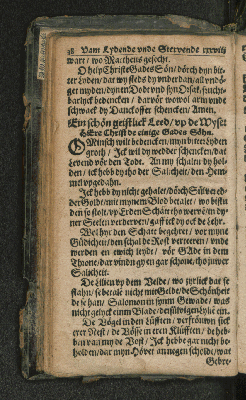 Vam Lydende vnde Stervende xxxviij
wart / wo Mattheus gesecht.
O help Christe Gades Sön / dörch dyn bit-
ter Lyden / dat wy stedts dy vnderdan / all vndö-
get myden / dynen Dodt vnd syn Orsak / frucht-
barlyck bedencken / darvör wowol arm vnde
schwack dy Danckoffer schencken / Amen.
Ein schön geistlick Leed / vp de Wyse:
HEre Christ de einige Gades Söhn.
O Minsch wilt bedencken myn bitter Lyden
groth / Ick wil dy wedder schencken / dat
Levend vör den Dodt. An my schaltu dy hol-
den / ick hebb dy tho der Salicheit / den Hem-
mel vpgedahn.
Ick hebb dy nicht gehalet / dörch Sülver ed-
der Gold / mit mynem Blod betalet / wo bistu
den so stolt / vp Erden Schatte tho werven / dy-
ner Seelen verderven / gaff ick dy ock de Lehr.
Wol hyr den Schatt begehret / vor myne
Güdicheit / den schal de Rost vorteeren / vnde
werden en ewich leydt / vör GAde in dem
Throne / dar vindt gy en gar schone / tho juwer
Salicheit.
De Lilien vp dem Velde / wo zyrlick dat se
stahn / se betale nicht mit Gelde / de Schönheit
de se han / Salomon in synem Gewade / was
nicht gelyck einem Blade / dersülvigen Lylie ein.
De Vögel in den Lüfften / vertrüwen sick
erer Nest / de Vösse in eren Klüfften / de heb-
ben van my de Vost / Ick hebbe gar nicht be-
holden / dar myn Hövet an negen scholde / wat
Gebre-